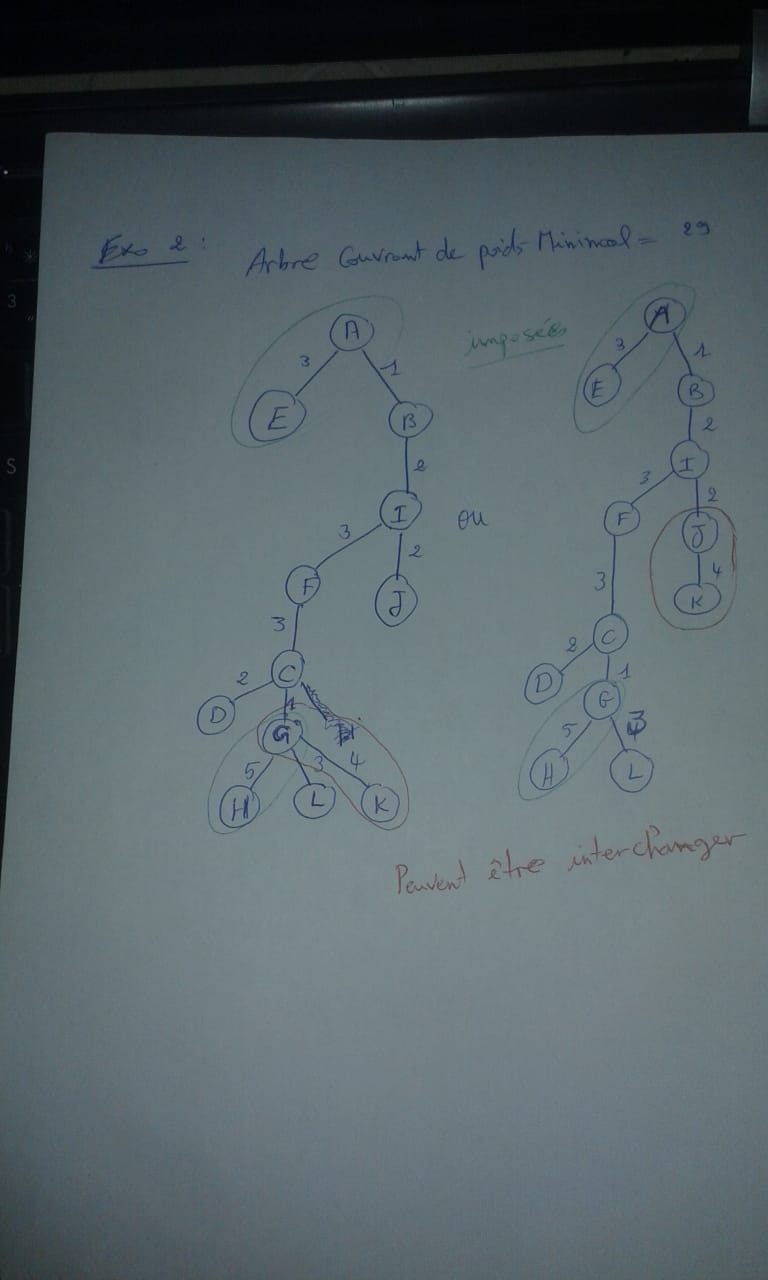 Exo 2 : Arbre Couvrant de poids Minimal = 29
imposées
A
3
1
E
B
2
I
3
2
F
J
3
C
2
1
D
G
5
3
4
H
L
K
ou
A
3
1
E
B
2
I
3
2
F
J
4
K
3
C
2
1
D
G
5
3
H
L
Peuvent être interchanger